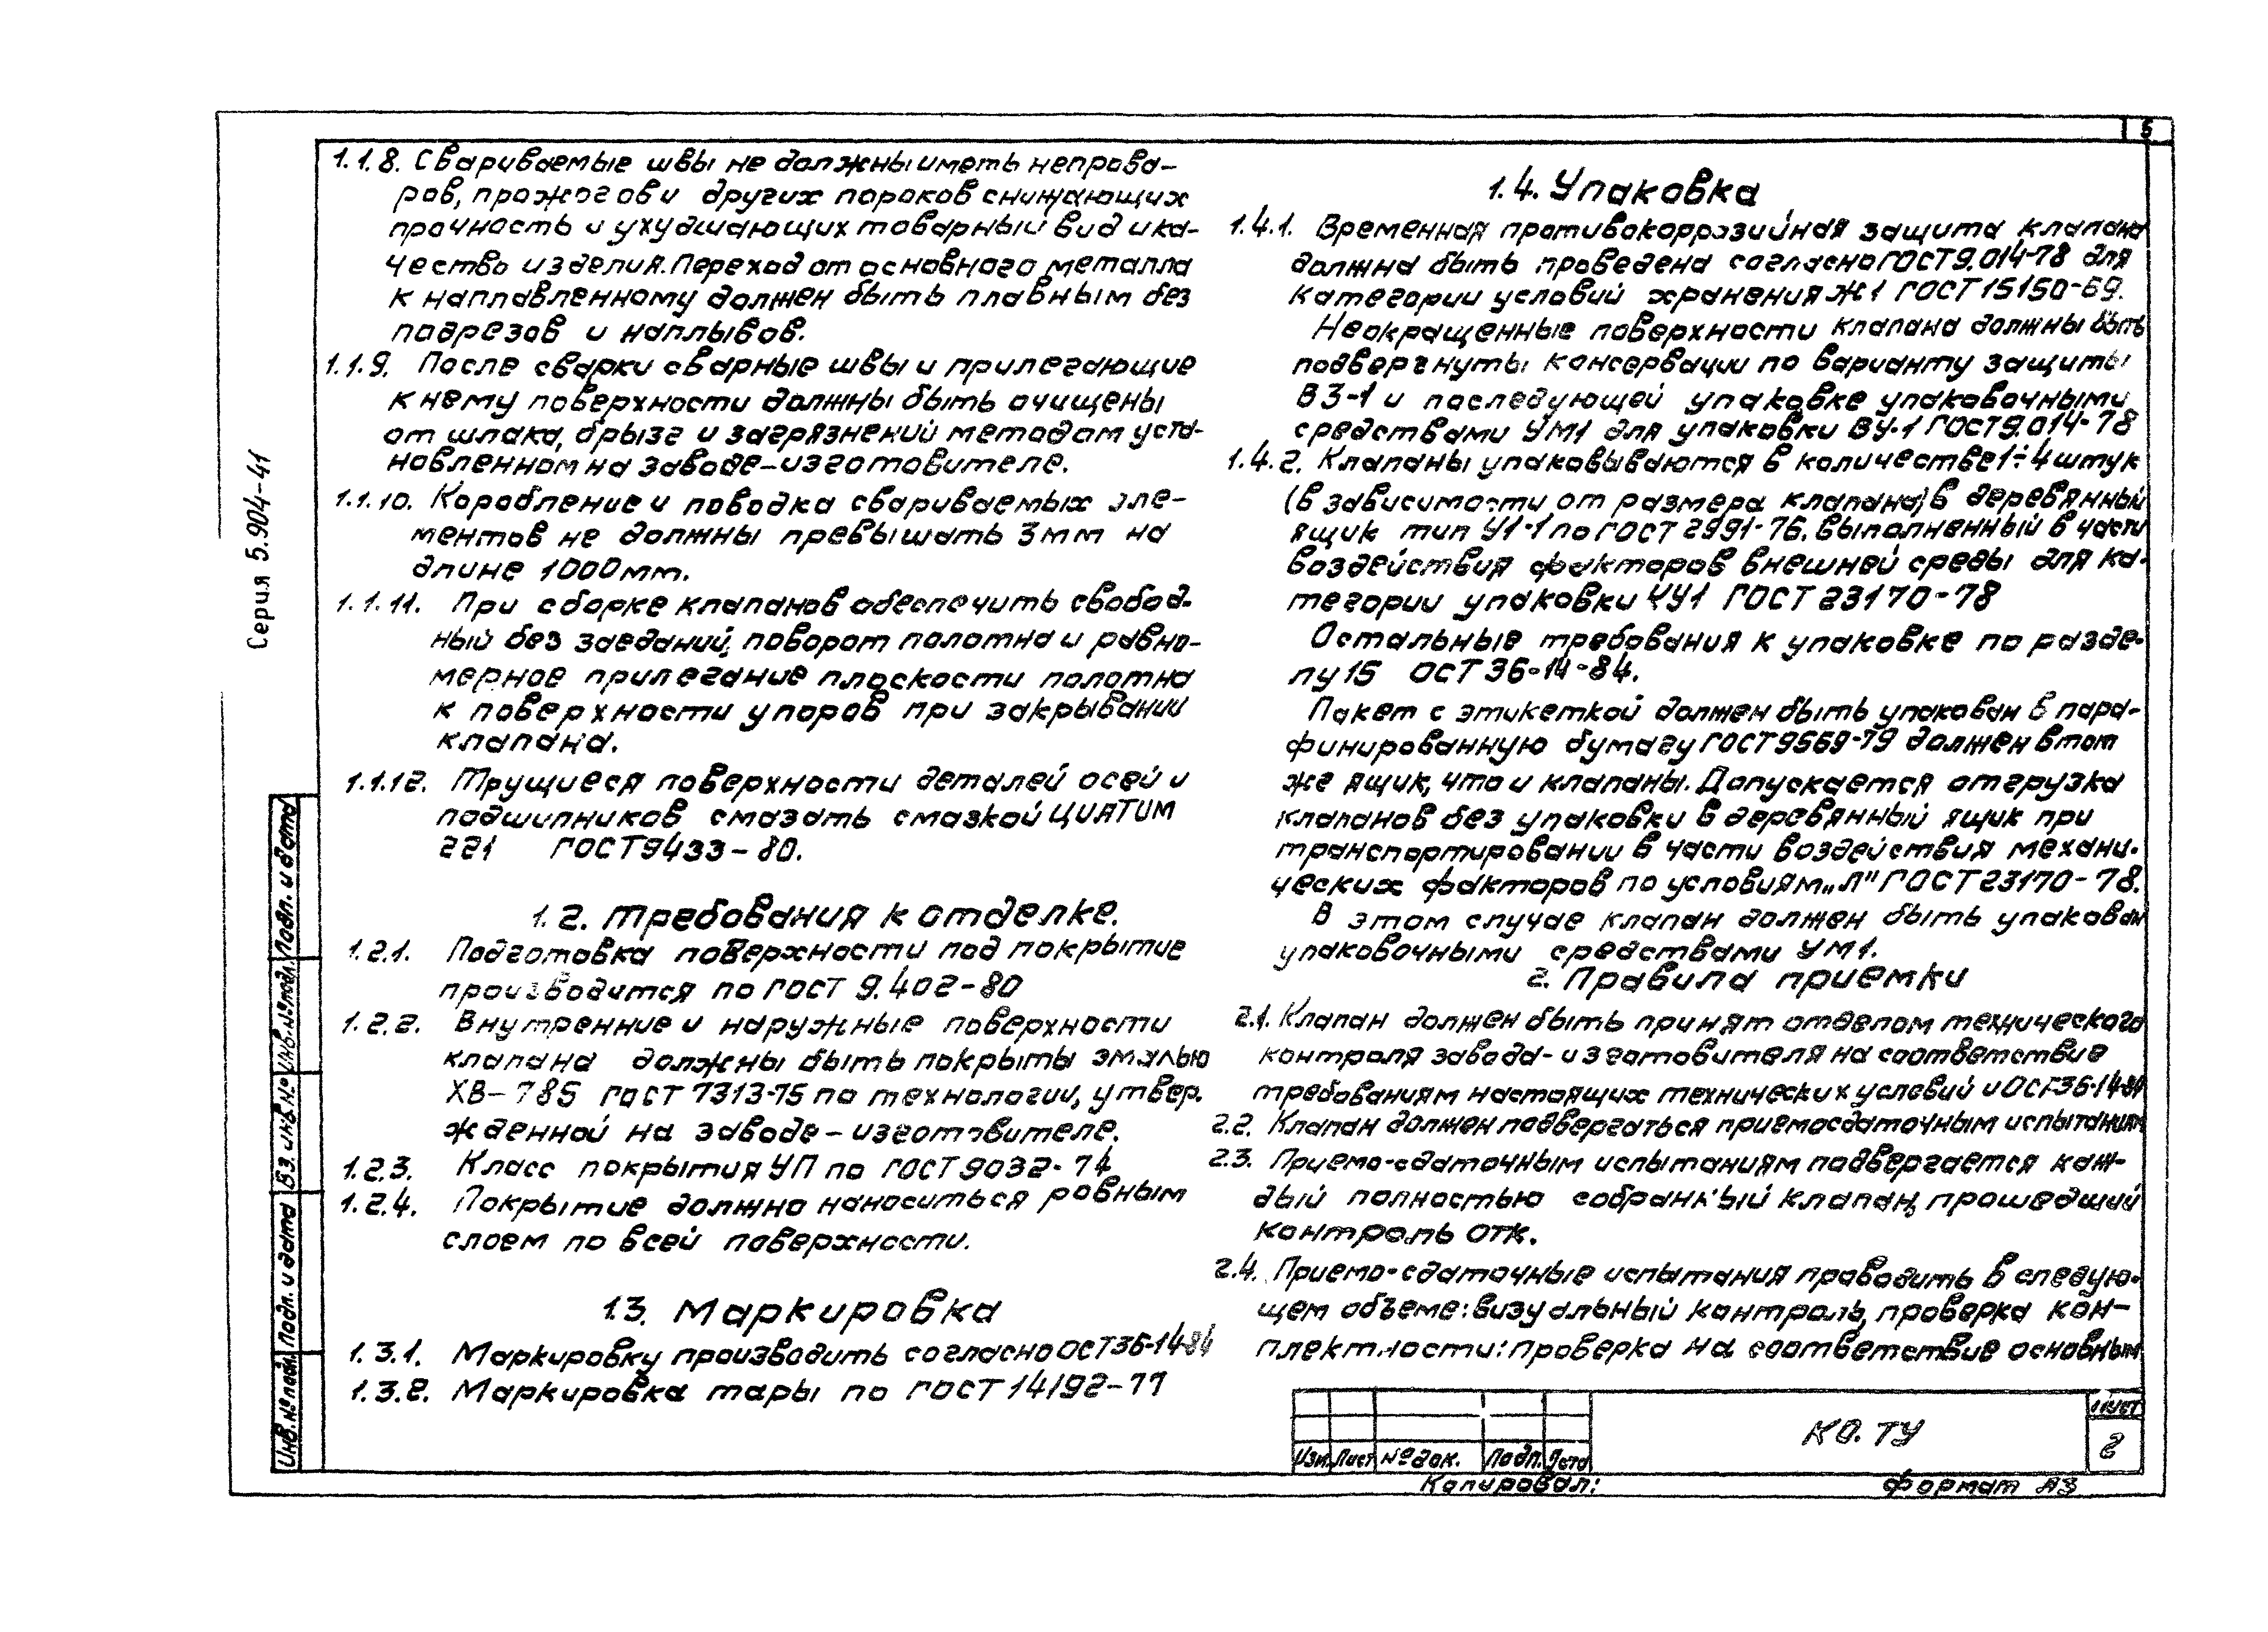 5
1.1.8. Свариваемые швы не должны иметь непрова-
ров, прожогов и других пороков снижающих
прочность и ухудшающих товарный вид и ка-
чество изделия. Переход от основного металла
к наплавленному должен быть плавным без
подрезов и наплывов.
1.1.9. После сварки сварные швы и прилегающие
к нему поверхности должны быть очищены
от шлака, брызг и загрязнений методом уста-
новленном на заводе-изготовителе.
1.1.10. Коробление и поводка свариваемых эле-
ментов не должны превышать 3 мм на
длине 1000 мм.
1.1.11. При сборке клапанов обеспечить свобод-
ный без заеданий, поворот полотна и равно-
мерное прилегание плоскости полотна
к поверхности упоров при закрывании
клапана.
1.1.12. Трущиеся поверхности деталей осей и
подшипников смазать смазкой ЦИАТИМ
221 ГОСТ 9433-80.
1.2. Требования к отделке.
1.2.1. Подготовка поверхности под покрытие
производится по ГОСТ 9.402-80
1.2.2. Внутренние и наружные поверхности
клапана должны быть покрыты эмалью
ХВ-785 ГОСТ 7313-75 по технологии, утвер-
жденной на заводе-изготовителе.
1.2.3. Класс покрытия УП по ГОСТ 9032-74
1.2.4. Покрытие должно наноситься ровным
слоем по всей поверхности.
1.3. Маркировка
1.3.1. Маркировку производить согласно ОСТ 36-14-84
1.3.2. Маркировка тары по ГОСТ 14192-77
1.4. Упаковка
1.4.1. Временная противокоррозийная защита клапана
должна быть проведена согласно ГОСТ 9.014-78 для
категории условий хранения Ж1 ГОСТ 15150-69.
Неокращенные поверхности клапана должны быть
подвергнуты консервации по варианту защиты
ВЗ-1 и последующей упаковке упаковочными
средствами УМ1 для упаковки ВУ-1 ГОСТ 9.014-78
1.4.2. Клапаны упаковываются в количестве 1÷4 штук
(в зависимости от размера клапана) в деревянный
ящик тип У1-1 по ГОСТ 2991-76. выполненный в части
воздействия факторов внешней среды для ка-
тегории упаковки УУ1 ГОСТ 23170-78
Остальные требования к упаковке по разде-
лу 15 ОСТ 36-14-84.
Пакет с этикеткой должен быть упакован в пара-
финированную бумагу ГОСТ 9569-79 должен в тот
же ящик, что и клапаны. Допускается отгрузка
клапанов без упаковки в деревянный ящик при
транспортировании в части воздействия механи-
ческих факторов по условиям „Л" ГОСТ 23170-78.
В этом случае клапан должен быть упакован
упаковочными средствами УМ1.
2. Правила приемки
2.1. Клапан должен быть принят отделом технического
контроля завода-изготовителя на соответствие
требованиям настоящих технических условий и ОСТ 36-14-84
2.2. Клапан должен подвергаться приемосдаточным испытаниям
2.3. Приемо-сдаточным испытаниям подвергается каж-
дый полностью собранный клапан, прошедший
контроль ОТК.
2.4. Приемо-сдаточные испытания проводить в следую-
щем объеме: визуальный контроль, проверка кон-
плектности: проверка на соответствие основным
Серия 5.904-41
Инв. № подл. Подп. и дата Вз. инв № Инв. № подл. Подп. и дата
Изм. Лист № док. Подп. Дата
КО. ТУ
Лист
2
Копировал:
Формат А3